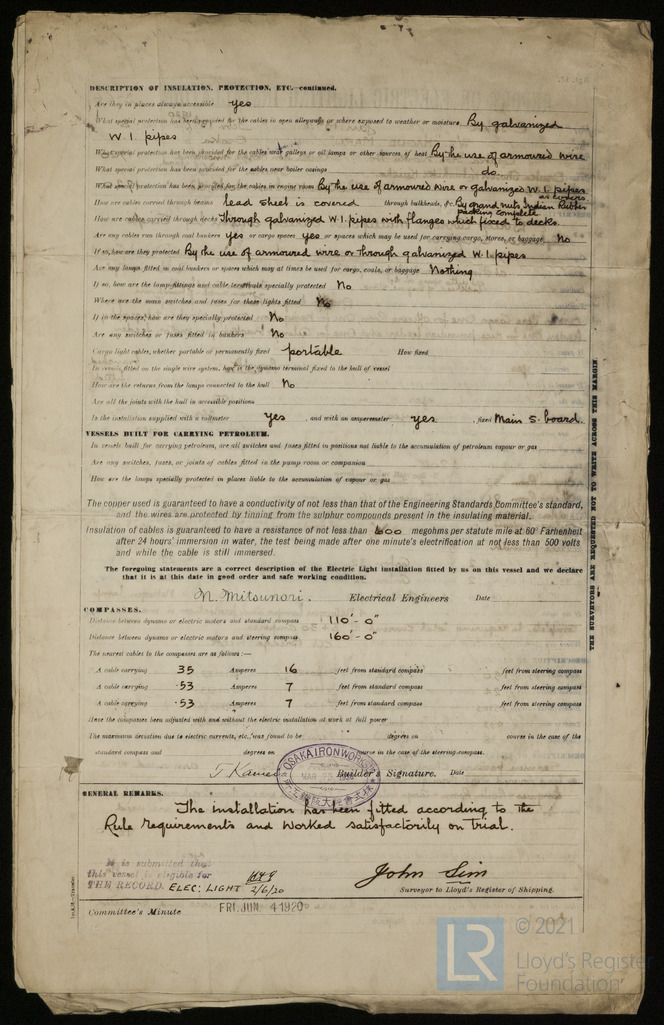 DESCRIPTION OF INSULATION, PROTECTION, ETC.—continued.
Are they in places always accessible yes
What special protection has been provided for the cables in open alleyways or where exposed to weather or moisture By galvanized
W.I. pipes
What special protection has been provided for the cables near galleys or oil lamps or other sources of heat By the use of armoured wire
What special protection has been provided for the cables near boiler casings do.
What special protection has been provided for the cables in engine room By the use of armoured wire or galvanized W.I. pipes
How are cables carried through beams lead sheet is covered through bulkheads, &c. By grand nuts Indian Rubber
packing complete
How are cables carried through decks Through galvanized W.I. pipes with flanges which fixed to decks.
Are any cables run through coal bunkers yes or cargo spaces yes or spaces which may be used for carrying cargo, stores, or baggage No
If so, how are they protected By the use of armoured wire or through galvanized W.I. pipes
Are any lamps fitted in coal bunkers or spaces which may at times be used for cargo, coals, or baggage Nothing
If so, how are the lamp fittings and cable terminals specially protected No
Where are the main switches and fuses for these lights fitted No
If in the spaces, how are they specially protected No
Are any switches or fuses fitted in bunkers No
Cargo light cables, whether portable or permanently fixed portable How fixed
In vessels fitted on the single wire system, how is the dynamo terminal fixed to the hull of vessel
How are the returns from the lamps connected to the hull No
Are all the joints with the hull in accessible positions
Is the installation supplied with a voltmeter yes, and with an amperemeter yes, fixed Main S. board.
VESSELS BUILT FOR CARRYING PETROLEUM.
In vessels built for carrying petroleum, are all switches and fuses fitted in positions not liable to the accumulation of petroleum vapour or gas
Are any switches, fuses, or joints of cables fitted in the pump room or companion
How are the lamps specially protected in places liable to the accumulation of vapour or gas
The copper used is guaranteed to have a conductivity of not less than that of the Engineering Standards Committee's standard,
and the wires are protected by tinning from the sulphur compounds present in the insulating material.
Insulation of cables is guaranteed to have a resistance of not less than 600 megohms per statute mile at 60° Farhenheit
after 24 hours' immersion in water, the test being made after one minute's electrification at not less than 500 volts
and while the cable is still immersed.
The foregoing statements are a correct description of the Electric Light installation fitted by us on this vessel and we declare
that it is at this date in good order and safe working condition.
N. Mitsunori. Electrical Engineers Date
COMPASSES.
Distance between dynamo or electric motors and standard compass 110'-0"
Distance between dynamo or electric motors and steering compass 160'-0"
The nearest cables to the compasses are as follows:—
A cable carrying 35 Amperes 16 feet from standard compass feet from steering compass
A cable carrying .53 Amperes 7 feet from standard compass feet from steering compass
A cable carrying .53 Amperes 7 feet from standard compass feet from steering compass
Have the compasses been adjusted with and without the electric installation at work at full power
The maximum deviation due to electric currents, etc., was found to be degrees on course in the case of the
standard compass and degrees on course in the case of the steering compass.
OSAKA IRON WORKS
MAR 25
Builder's Signature. Date
GENERAL REMARKS.
The installation has been fitted according to the
Rule requirements and worked satisfactorily on trial.
It is submitted that
this vessel is eligible for
THE RECORD. ELEC: LIGHT 2/6/20
John Sim
Surveyor to Lloyd's Register of Shipping.
Committee's Minute FRI. JUN. 4 1920
THE SURVEYORS ARE REQUESTED NOT TO WRITE ACROSS THIS MARGIN
LR
© 2021
Lloyd's Register
Foundation